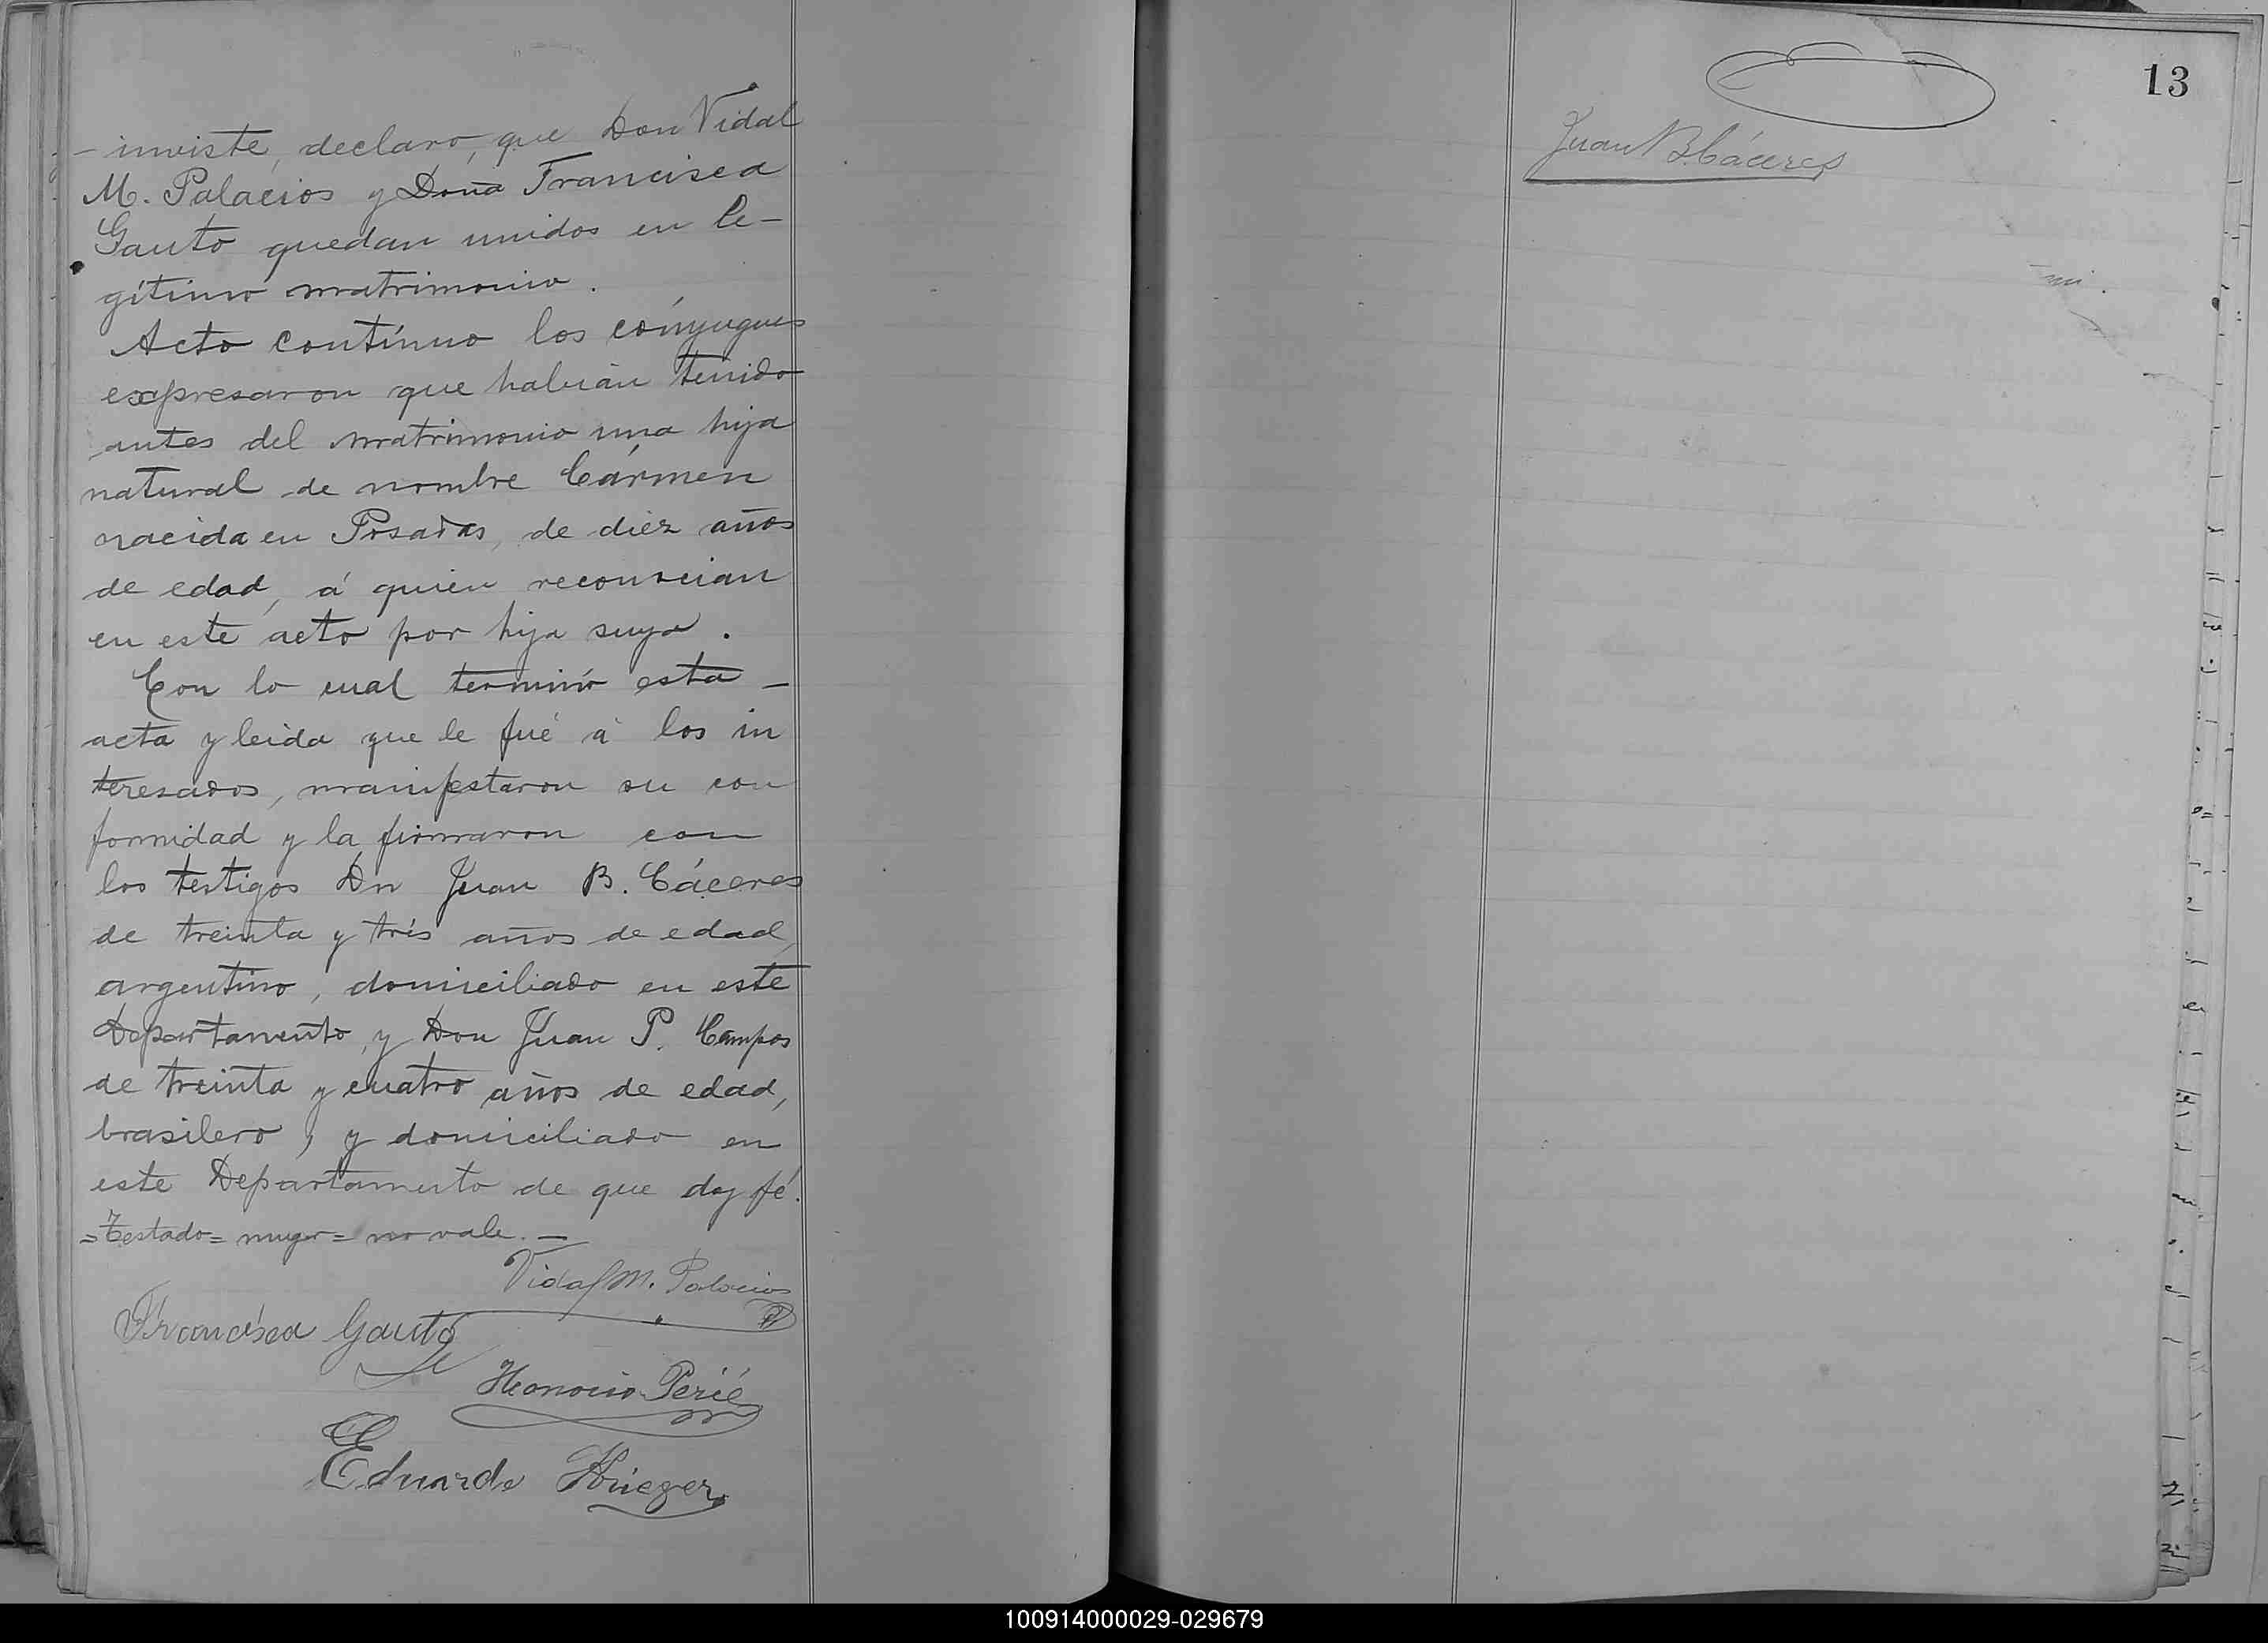 inviste, declaro, que Don Vidal
M. Palacios y Doña Francisca
Gauto quedan unidos en le-
gítimo matrimonio.
Acto contínuo los cónyugues
expresaron que habián tenido
antes del matrimonio una hija
natural de nombre Cármen
nacida en Posadas, de diez años
de edad, á quien reconocian
en este acto por hija suya.
Con lo cual terminó esta -
acta y leida que le fué á los in
teresados, manifestaron su con
formidad y la firmaron con
los testigos Dn Juan B. Cáceres
de treinta y trés años de edad,
argentino, domiciliado en este
Departamento, y Don Juan P. Campos
de treinta y cuatro años de edad,
brasilero, y domiciliado en
este Departamento de que doy fé.
=Testado= muger = no vale. -
Vidal M. Palacios
Francisca Gauto
Honorio Perié
Eduardo Krieger
13
Juan B Cáceres
100914000029-029679